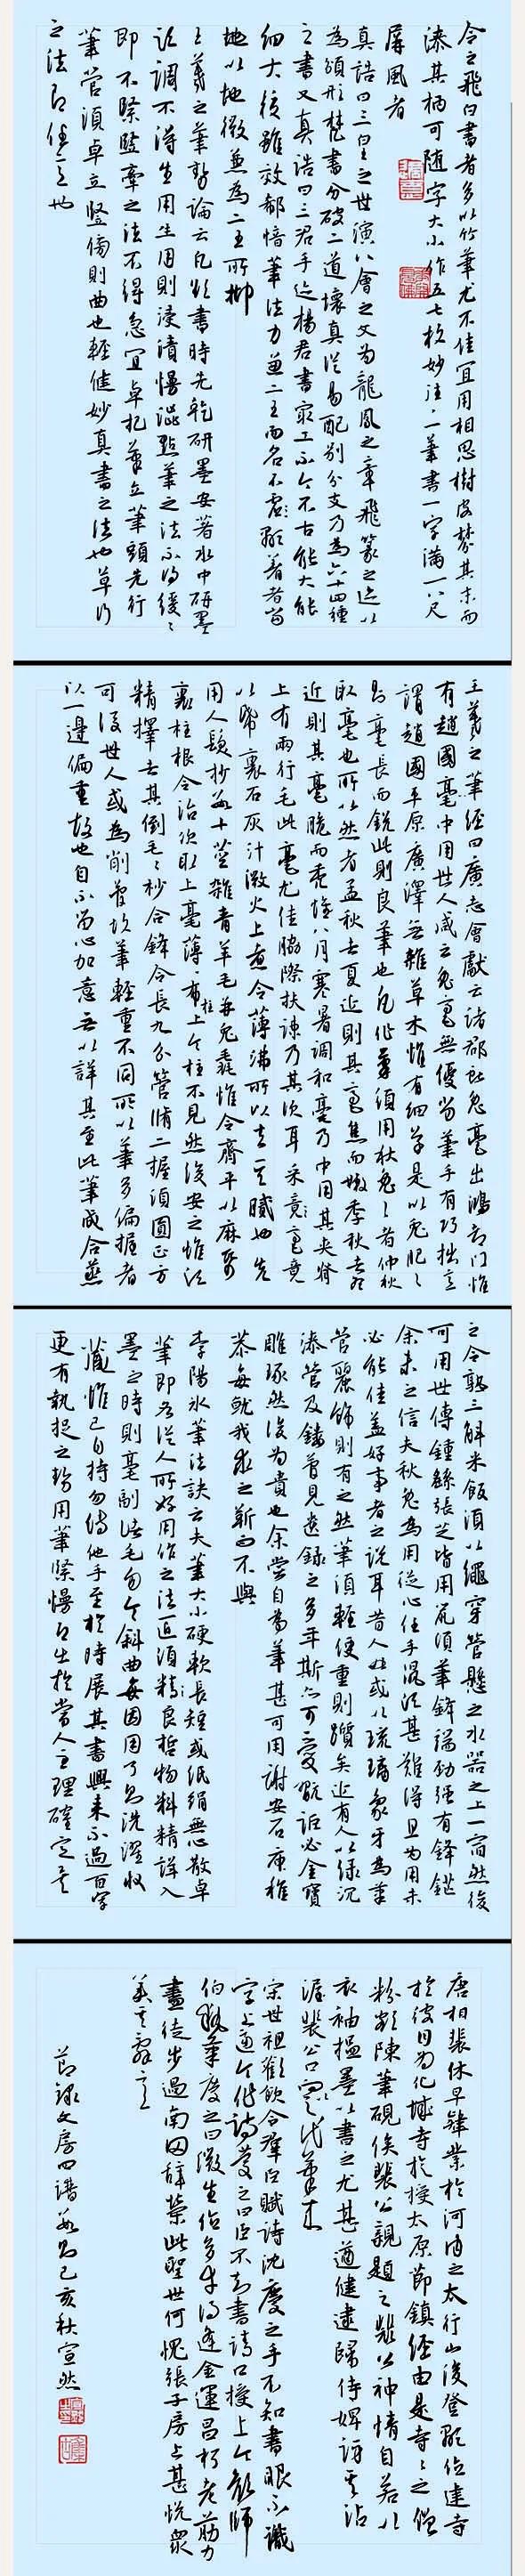 今之飛白書者多以竹筆尤不佳宜用相思樹皮棼其末而
漆其柄可随字大小作五七枚妙往一筆書一字滿一八尺
屏風者
真誥曰三皇之世演八會之文為龍鳳之章飛篆之迹以
為頌形梵書分破二道壞真從易配别分支乃為六十四種
之書又真誥曰三君手迹楊君書最工不今不古能大能
細大较雖效郗愔筆法力兼二王而名不顯著者當
地以地微兼為二王所抑
王羲之筆勢論云凡欲書時先乾研墨安著水中研墨
須調不得生用生用則浸漬慢澁點筆之法不得緩々
即不緊豎牽之法不得急宜卓把筆立筆頭先行
筆管須卓立豎傍則曲也輕健妙真書之法也草行
之法即任意也
王羲之筆經曰廣志會獻云諸郡獻兔毫出鴻都門惟
有趙國毫中用世人咸云兔毫無優劣筆手有巧拙意
謂趙國平原廣澤無雜草木惟有細草是以兔肥々
則毫長而鋭此則良筆也凡作筆須用秋兔々者仲秋
取毫也所以然者孟秋去夏近則其毫焦而嫩季秋去冬
近則其毫脆而禿惟八月寒暑調和毫乃中用其夾脊
上有兩行毛此毫尤佳脇際扶疎乃其次耳采毫竟
以紙裏石灰汁微火上煮令薄沸所以去其膩也先
用人髮杪數十莖雜青羊毛并兔毳惟令齊平以麻紙
裹柱根令治次取上毫薄々布柱上令柱不見然後安之惟須
精擇去其倒毛々杪合鋒令長九分管脩二握須圓正方
可後世人或為削管故筆輕重不同所以筆多偏握者
以一邊偏重故也自不留心加意無以詳其至此筆成合蒸
之令熟三斛米飯須以繩穿管懸之水器之上一宿然後
可用世傳鍾繇張芝皆用鼠須筆鋒端勁强有鋒鋩
余未之信夫秋兔為用從心任手鼠須甚難得且為用未
必能佳蓋好事者之說耳昔人或以琉璃象牙為筆
管麗飾則有之然筆須輕便重則躓矣近有人以緑沉
漆管及鏤管見遺録之多年斯亦可愛翫詎必金寶
雕琢然後為貴也余嘗自為筆甚可用謝安石庾稚
恭每就我求之靳而不與
李陽冰筆法訣云夫筆大小硬軟長短或紙絹無心散卓
筆即各從人所好用作之法匠須精良哲物料精詳入
墨之時則毫副諸毛勿令斜曲每因用了則洗濯收
藏惟己自持勿傳他手至於時展其書興来不過百字
更有執捉之勢用筆緊慢即出於當人主理確定矣
唐相裴休早肄業於河内之太行山後登顯位建寺
於彼目為化城寺於授太原節鎮經由是寺々之僧
粉額陳筆硯俟裴公親題之裴公神情自若以
衣袖搵墨以書之尤甚遒健逮歸侍婢訝其沾
渥裴公曰向以之代筆来
宋世祖歡飲令羣臣賦詩沈慶之手不知書眼不識
字上逼令作詩慶之曰臣不知書請口授上令顔師
伯執筆慶之曰微生值多幸得逢金運昌朽老筋力
盡徒步過南岡辭榮此聖世何愧張子房上甚悦衆
美其辭意
節録文房四譜數則己亥秋宣然